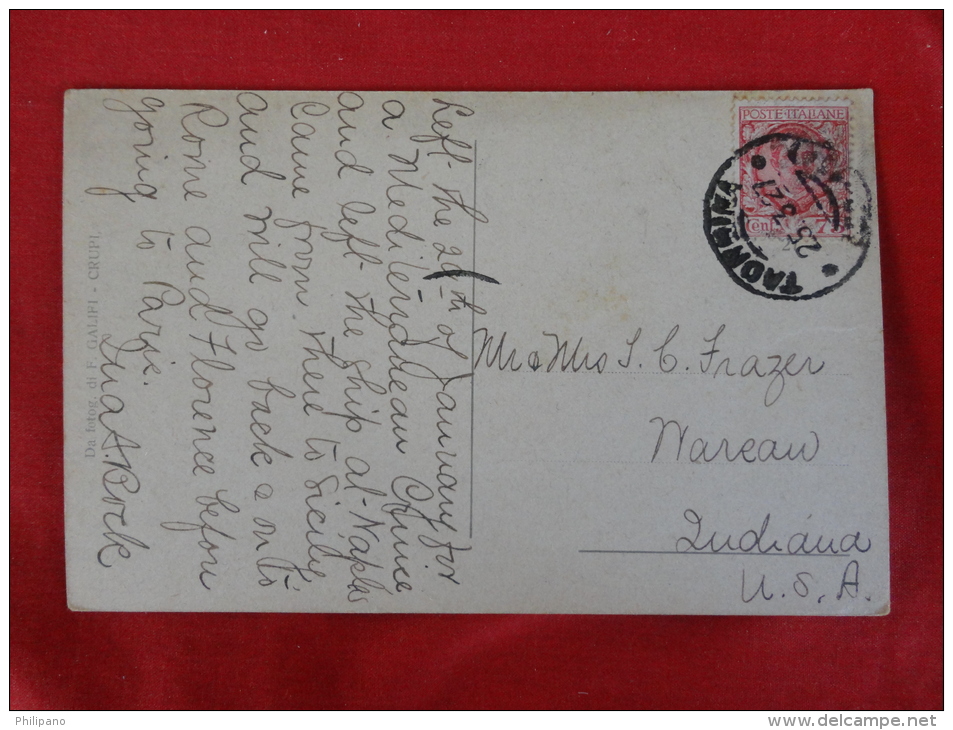 Left the 20th of January for
a Mediterddean Cruice
and left the ship at Naples
Came from there to Sicily
and will go back & on to
Rome and Florence before
going to Paris.
Ina A. Bock
Da fotog. di F. GALIFI - CRUPI.
POSTE·ITALIANE
Cent. 75
TAORMINA
Mr & Mrs S. C. Frazer
Warsaw
Indiana
U.S.A.
Philipano
www.delcampe.net